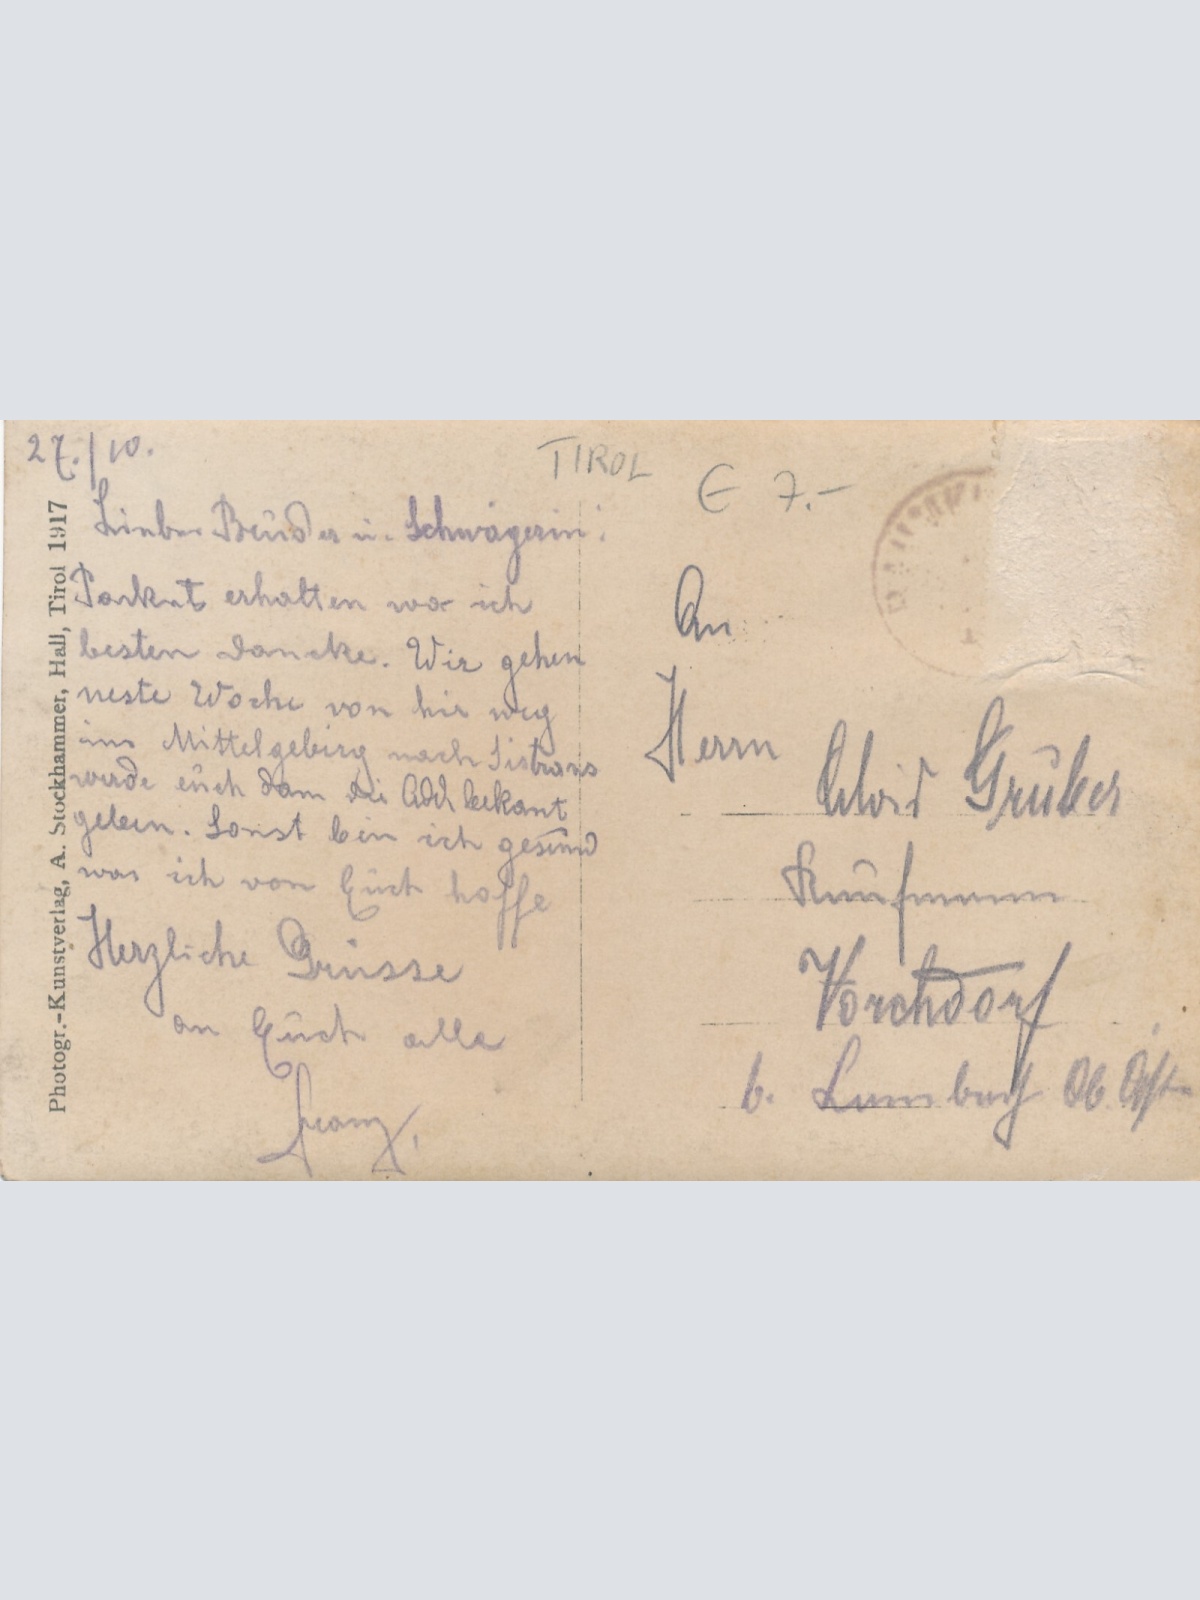 27./10.
TIROL
E 7.-
Lieber Bruder u. Schwägerin!
Packet erhalten wo ich
besten dancke. Wir gehen
neste Woche von hir weg
ins Mittelgebirg nach Sistrans
werde eŭch dam die Add bekant
geben. Sonst bin ich gesŭnd
was ich von Eŭch hoffe
Herzliche Grüsse
an Eŭch alle
Franz.
Photogr.-Kunstverlag, A. Stockhammer, Hall, Tirol 1917
An
Herrn Alois Grŭber
Kaŭfmann
Vorchdorf
b. Lambach Ob Öst